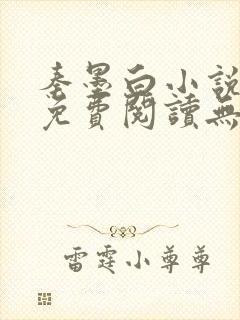 秦墨白小說
免費閱讀無
雷霆小尊尊